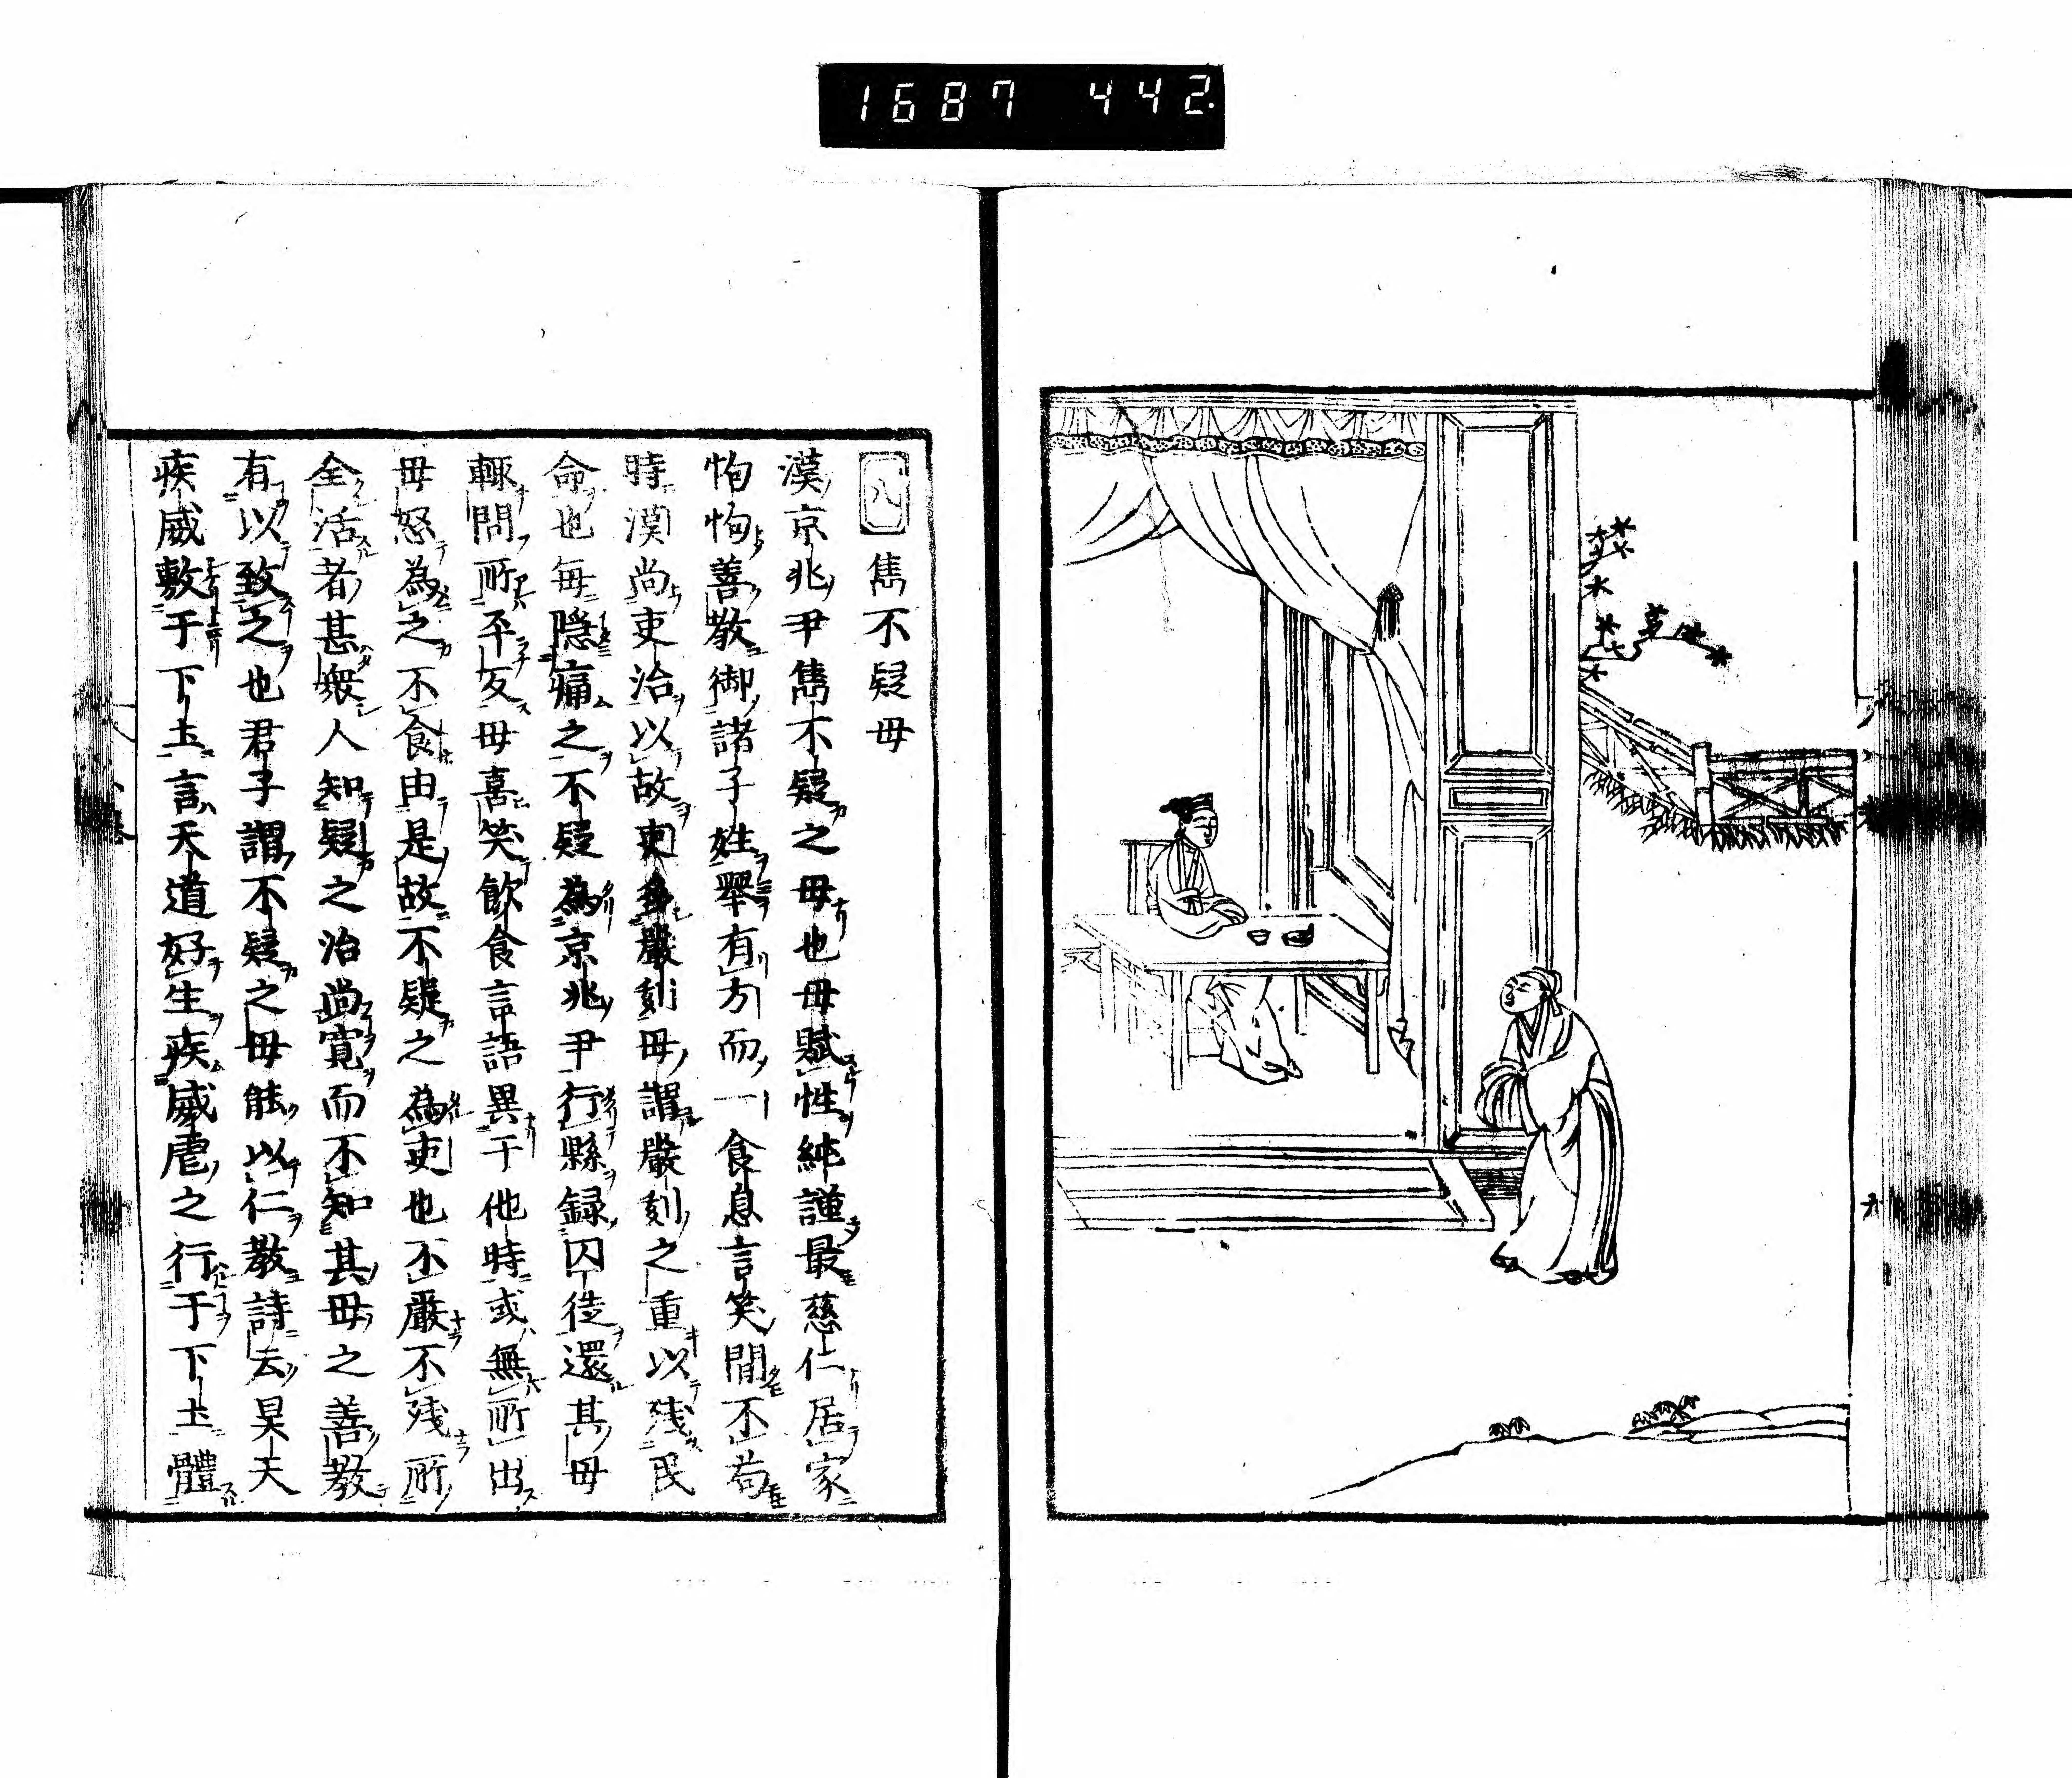 1687 442.
八 雋不疑毋
漢京兆尹雋不疑之毋也毋賦性純謹最慈仁居家
恂恂善教御諸子姓舉有方而一食息言笑間不苟
時漢尚吏治以故吏多嚴刻毋謂嚴刻之重以残民
命也每隠痛之不疑為京兆尹行縣録囚徒還其毋
輙問所平反毋喜笑飲食言語異于他時或無所出
毋怒為之不食由是故不疑之為吏也不嚴不残所
全活者甚衆人知疑之治尚寛而不知其毋之善教
有以致之也君子謂不疑之毋能以仁教詩云昊天
疾威敷于下土言天道好生疾威虐之行于下土體